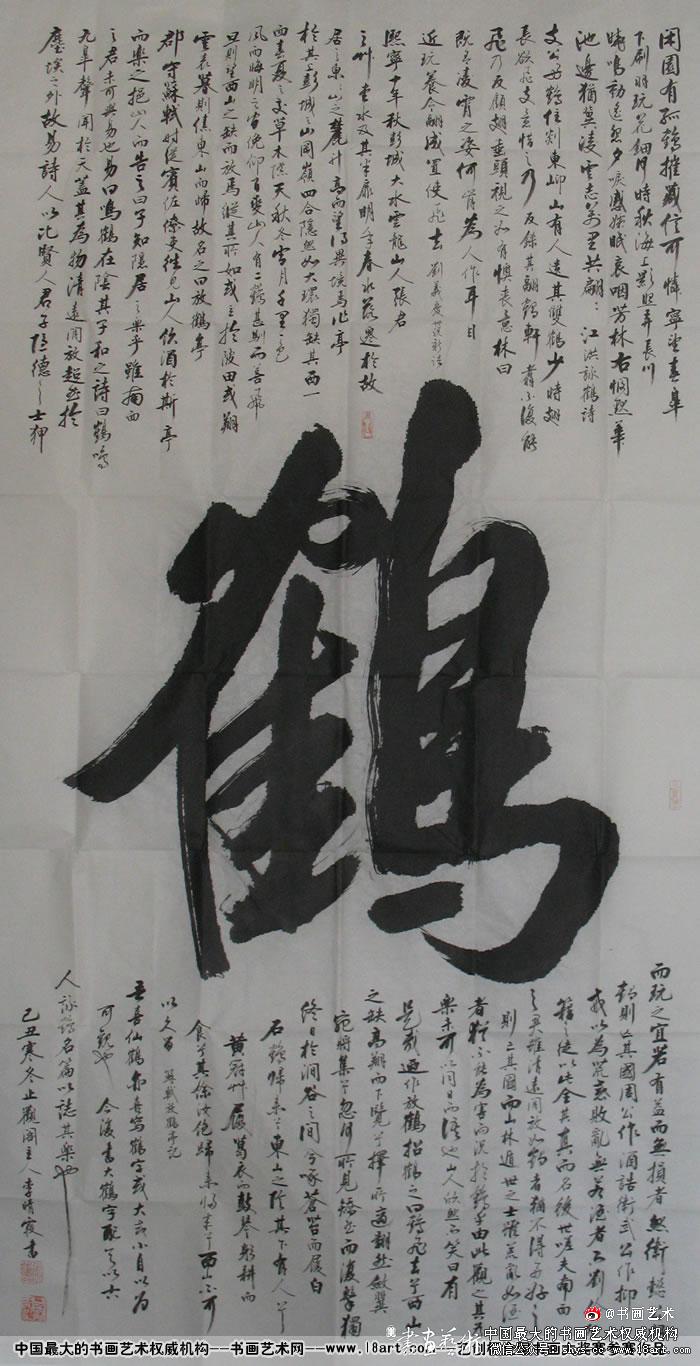 困園有孤鶴摧藏信可憐寧望春皋
下刷羽玩花鈿何時秋海上照影弄長川
曉鳴動遥怨夕唳感孀眠哀咽芳林右惆悵華
池邊猶冀凌雲志萬里共翩翩江洪詠鶴詩
支公好鶴住剡東岇山有人遺其雙鶴少時翅
長欲飛支意惜之乃鎩其翮鶴軒翥不復能
飛乃反顧翅垂頭視之如有懊喪意林曰
既有凌霄之姿何肯為人作耳目
近玩養令翮成置使飛去劉義慶世說新語
熙寧十年秋彭城大水雲龍山人張君
之草堂水及其半扉明年春水落遷於故
居之東東山之麓升高而望得異境焉作亭
於其上彭城之山岡嶺四合隱然如大環獨缺其西一
面春夏之交草木際天秋冬雪月千里一色
風雨晦明之間俯仰百變山人有二鶴甚馴而善飛
旦則望西山之缺而放焉縱其所如或立於陂田或翔
雲表暮則傃東山而歸故名之曰放鶴亭
郡守蘇軾時從賓佐僚吏往見山人飲酒於斯亭
而樂之挹山人而告之曰子知隱居之樂乎雖南面
之君未可與易也易曰鳴鶴在陰其子和之詩曰鶴鳴
九皋聲聞於天蓋其為物清遠閒放超然於
塵埃之外故易詩人以比賢人君子隱德之士狎
鶴
而玩之宜若有益而無損者然衛懿公好
鶴則亡其國周公作酒誥衛武公作抑
戒以為荒惑敗亂無若酒者而劉伶
籍之徒以此全其真而名後世嗟夫南面
之君雖清遠閒放如鶴者猶不得好好之
則亡其國而山林遁世之士雖荒惑敗亂如酒
者猶不能為害而況於鶴乎由此觀之其為
樂未可以同日而語也山人欣然而笑曰有
是哉乃作放鶴招鶴之歌曰鶴飛去兮西山
之缺高翔而下覽兮擇所適翻然斂翼
宛將集兮忽何所見矯然而復擊獨
終日於澗谷之間兮啄蒼苔而履白
石鶴歸來兮東山之陰其下有人兮
黄冠草屨葛衣而鼓琴躬耕而
食兮其餘以汝飽歸來歸來兮西山不可
以久留蘇軾放鶴亭記
吾喜仙鶴亦喜寫鶴字或大或小自以為
可觀也今復書大鶴字配以古
人詠鶴名篇以誌其樂也
己丑寒冬止觀閣主人李晴霞書
@书画艺术
中国最大的书画艺术权威机构--书画艺术网--www.18art.com
中国最大的书画艺术权威机构